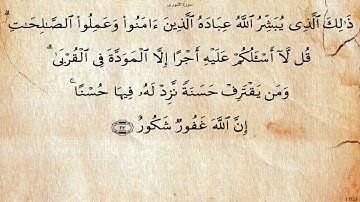 سورة الشورى
ذَٰلِكَ ٱلَّذِى يُبَشِّرُ ٱللَّهُ عِبَادَهُ ٱلَّذِينَ ءَامَنُوا۟ وَعَمِلُوا۟ ٱلصَّـٰلِحَـٰتِ ۗ
قُل لَّآ أَسْـَٔلُكُمْ عَلَيْهِ أَجْرًا إِلَّا ٱلْمَوَدَّةَ فِى ٱلْقُرْبَىٰ ۗ
وَمَن يَقْتَرِفْ حَسَنَةً نَّزِدْ لَهُۥ فِيهَا حُسْنًا ۚ
إِنَّ ٱللَّهَ غَفُورٌ شَكُورٌ ﴿٢٣﴾